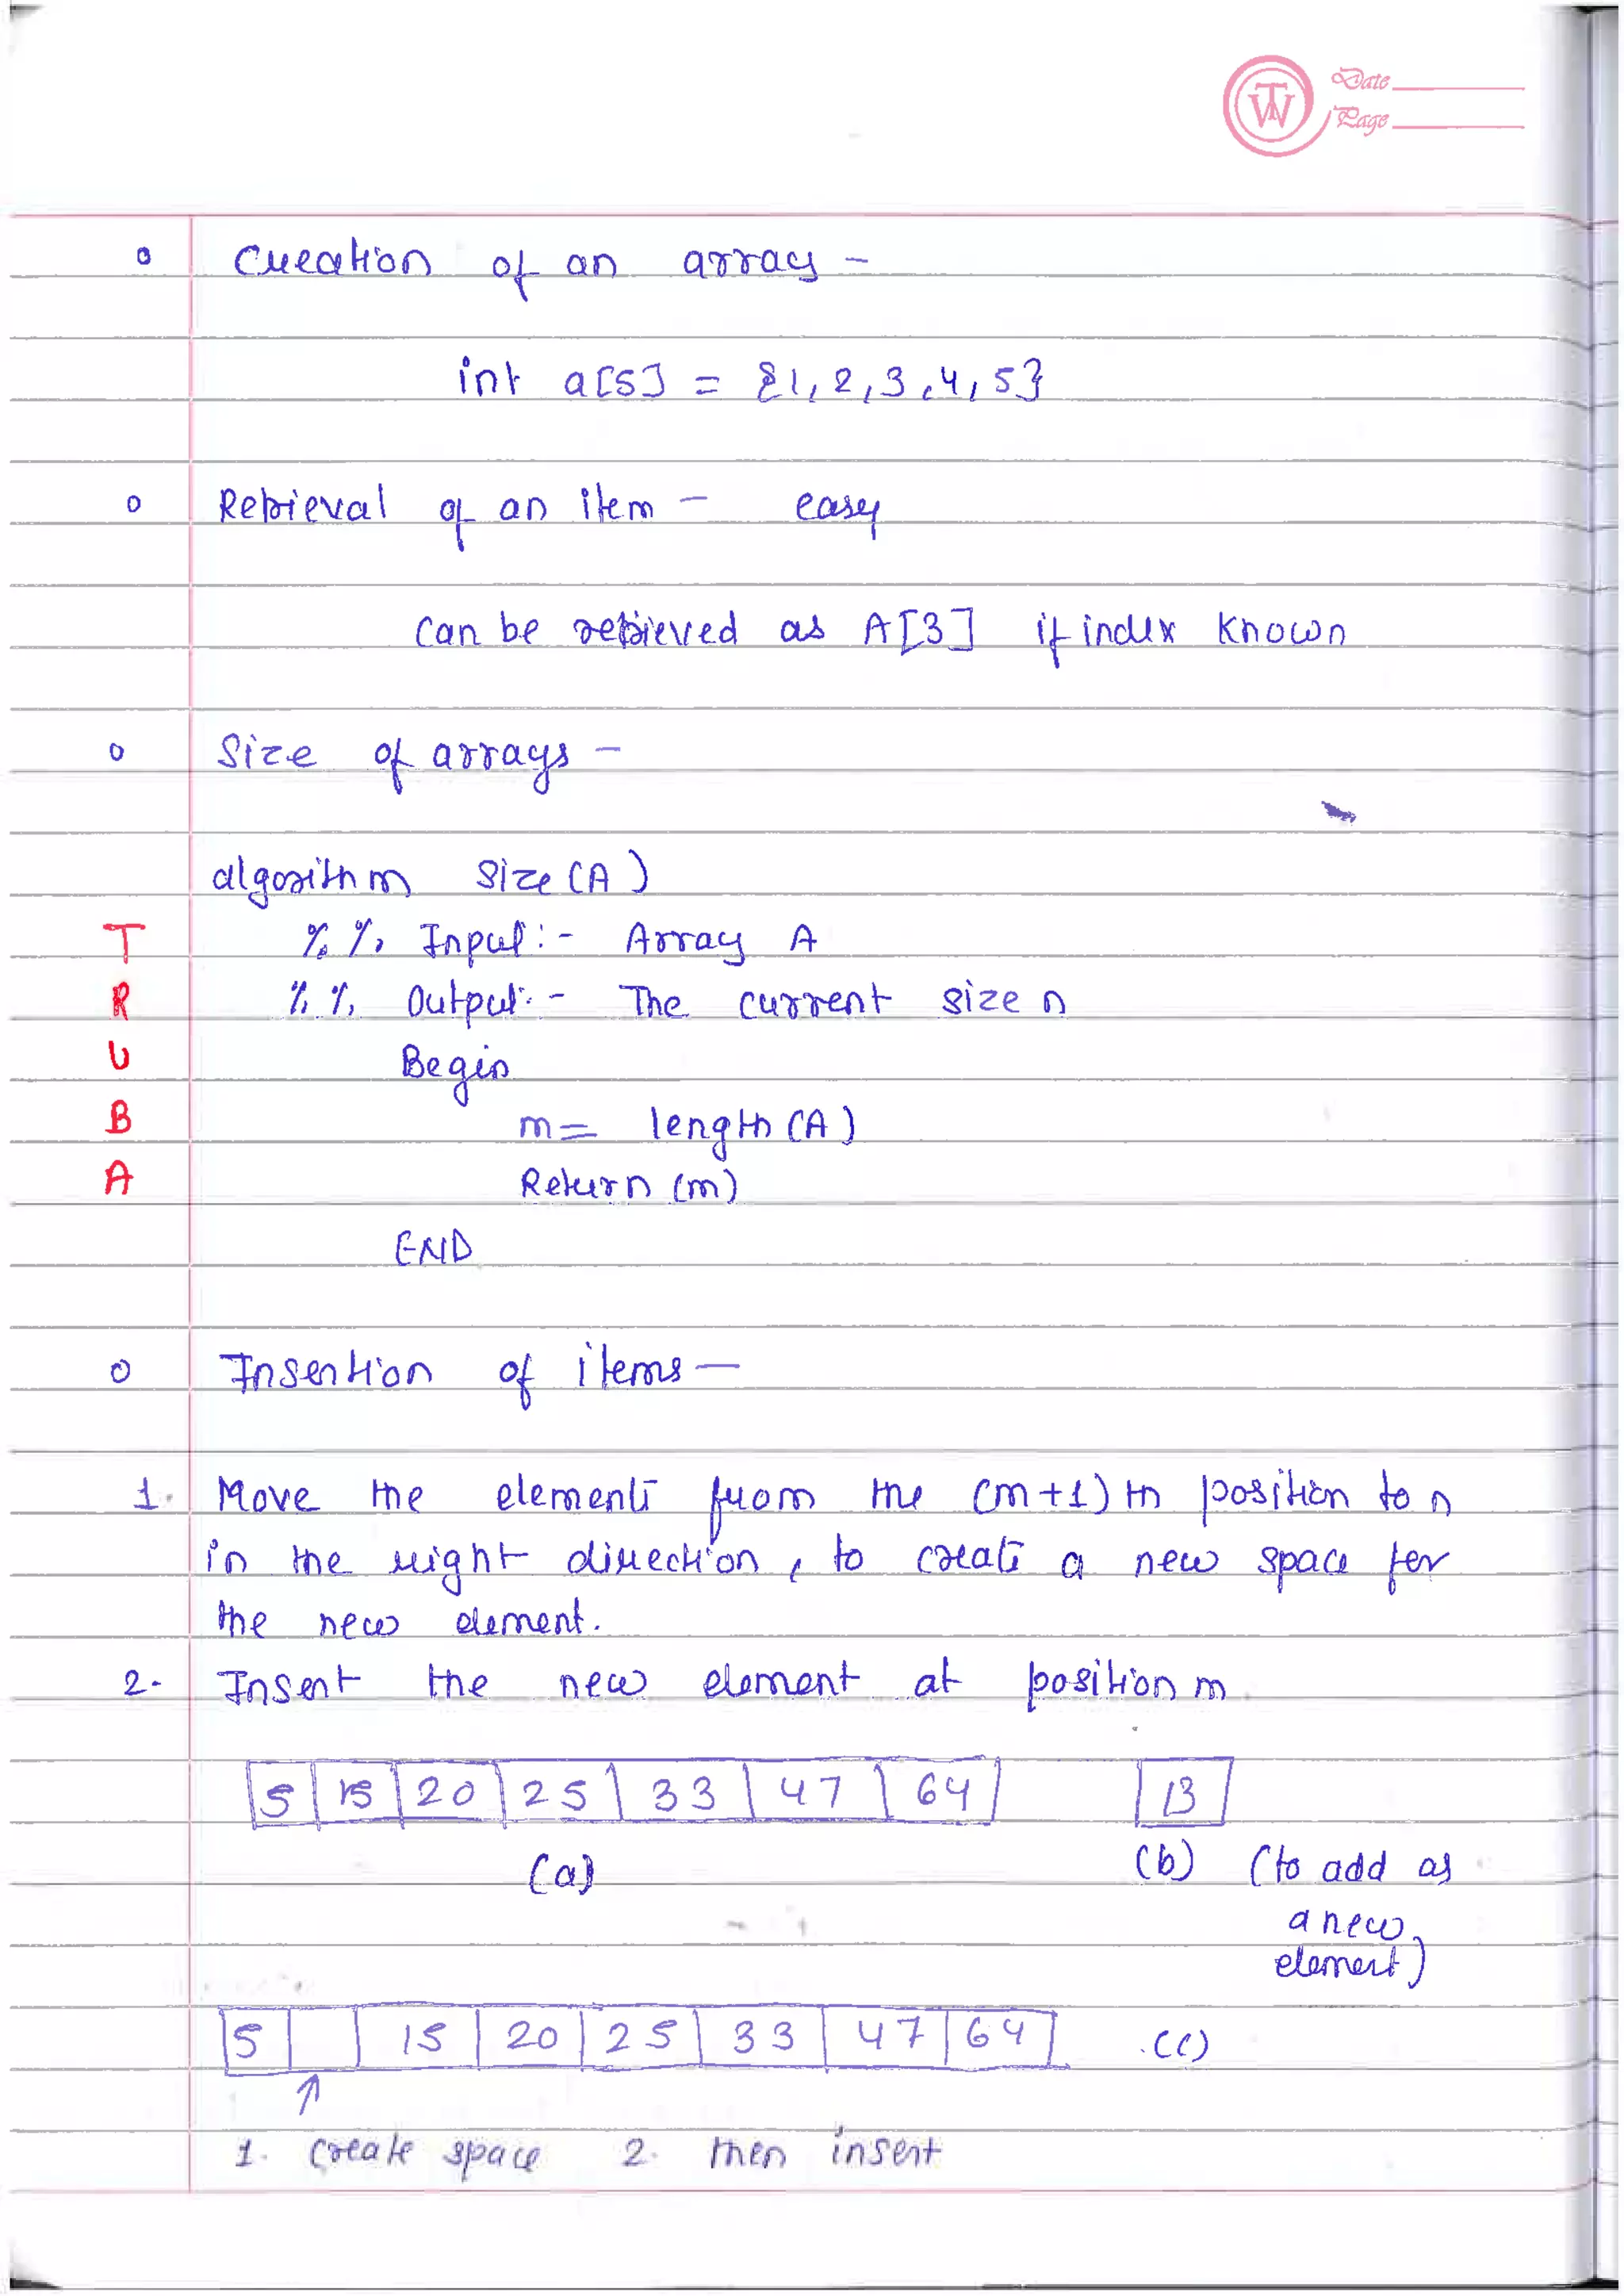 Date
Page
TW
o Creation of an array -
int a[5] = {1, 2, 3, 4, 5}
o Retrieval of an item - easy
Can be retrieved as A[3] if index known
o Size of arrays -
algorithm Size (A)
%% Input :- Array A
%% Output :- The current size n
Begin
m = length (A)
Return (m)
END
T
R
U
B
A
o Insertion of items -
1. Move the elements from the (m+1)th position to n
in the right direction, to create a new space for
the new element.
2. Insert the new element at position m.
5 15 20 25 33 47 64 13
(a) (b) (to add as
a new
element)
5 15 20 25 33 47 64 (c)
↑
1. Create space 2. then insert